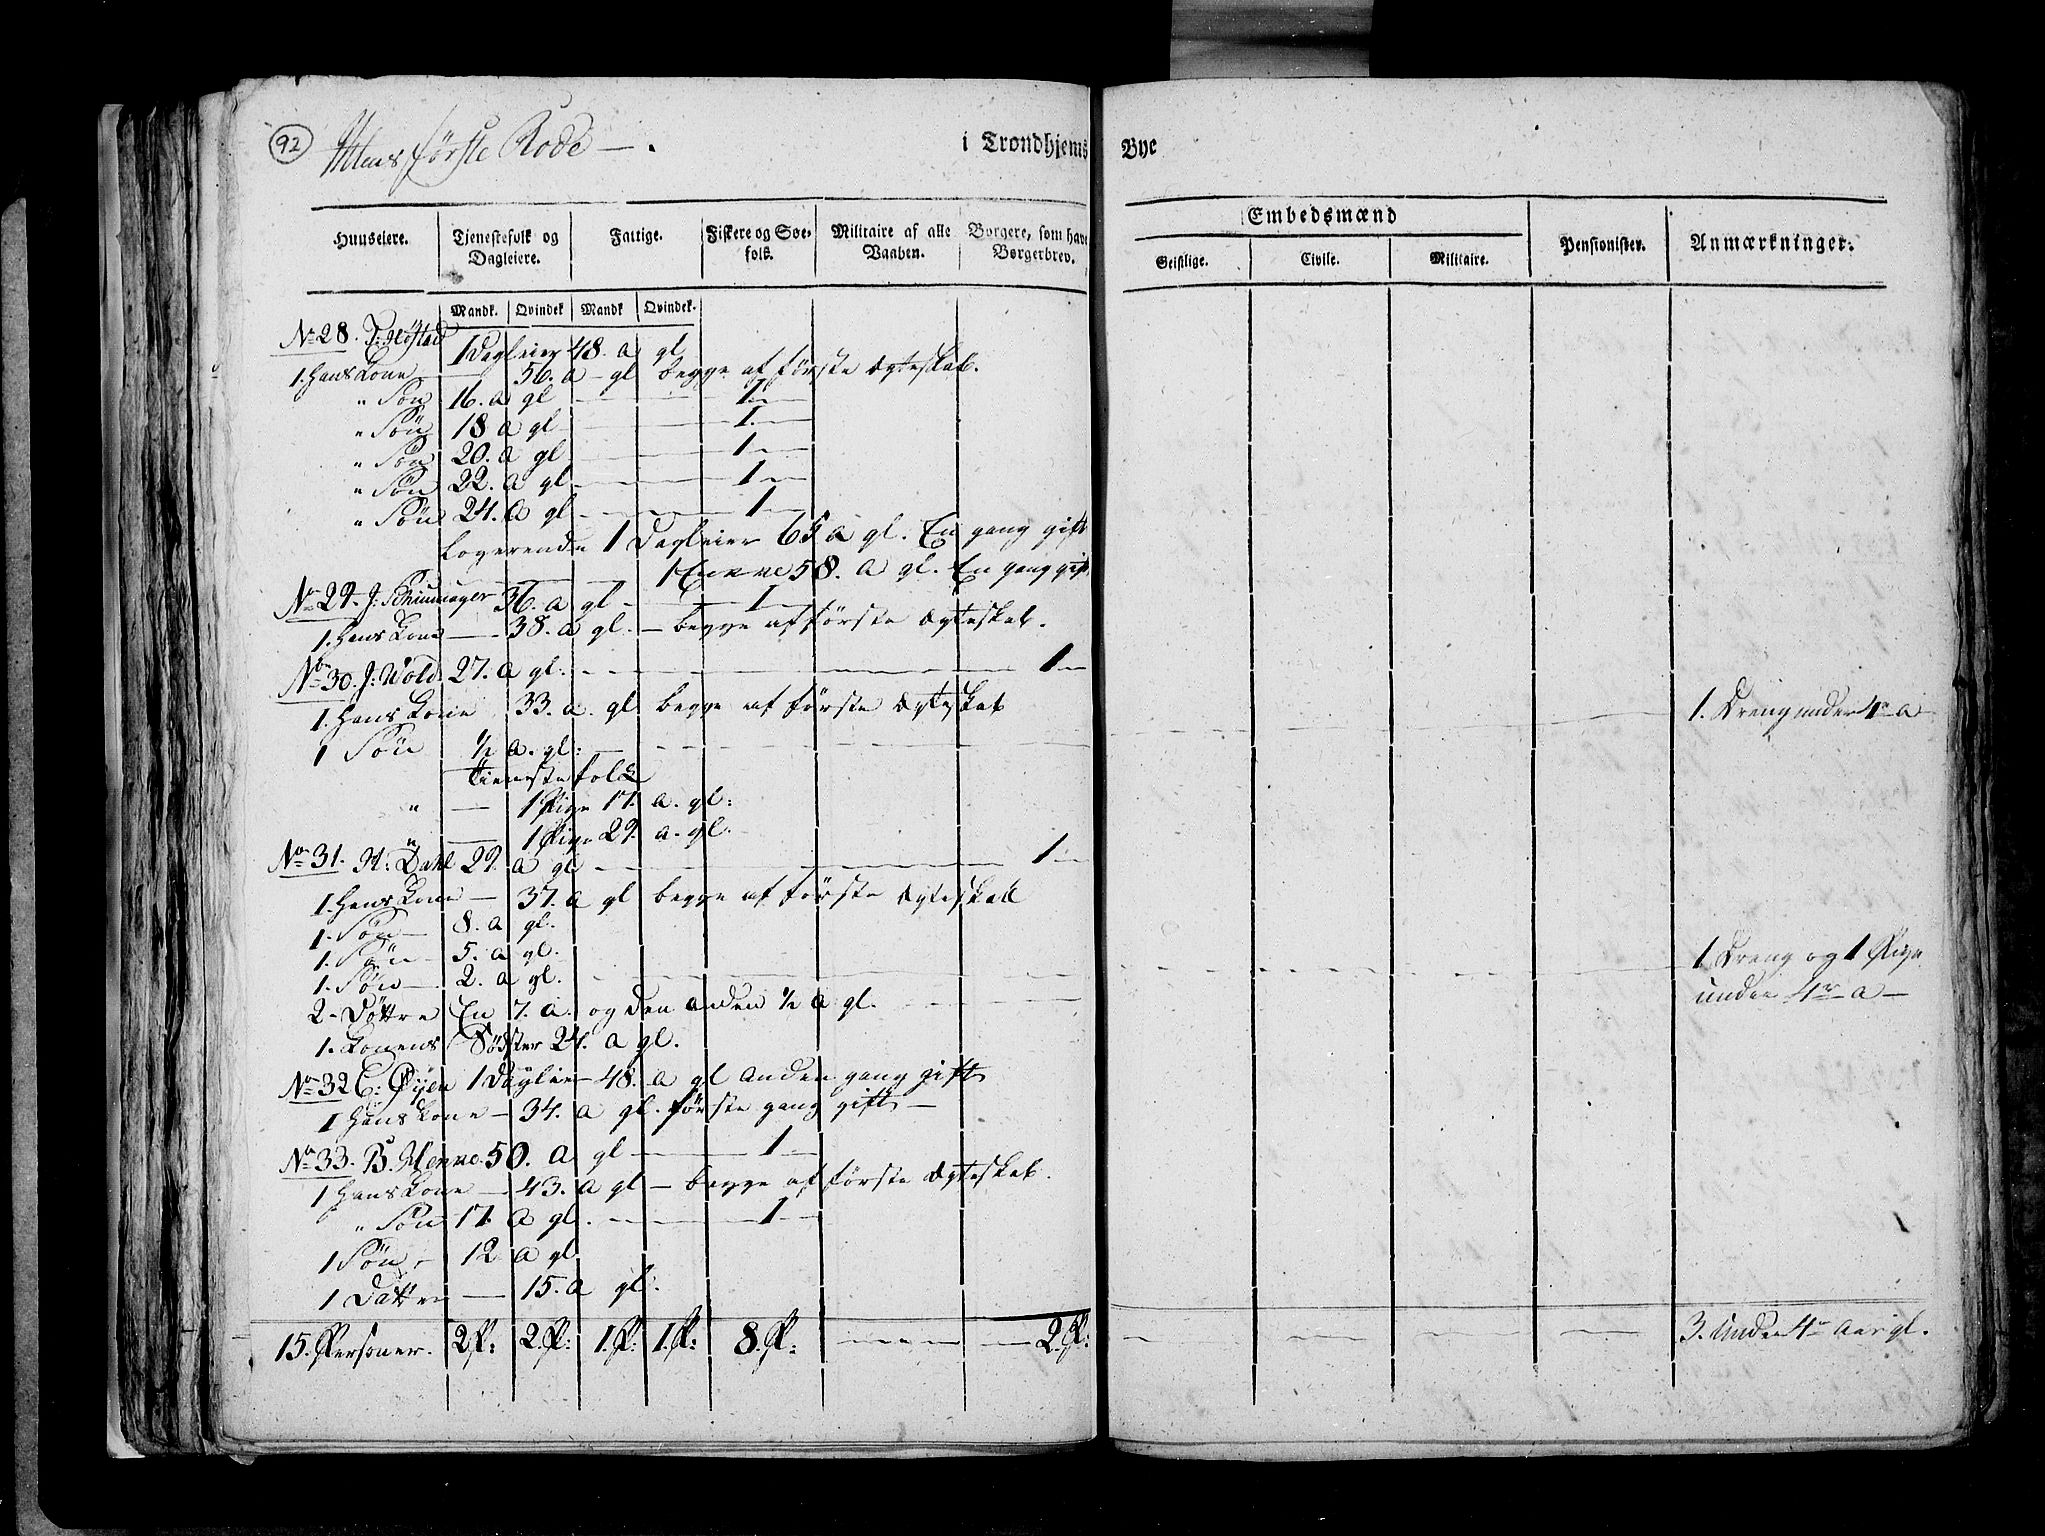 92
Ihlens første Rode —. i Trondhjems Bye
Huuseiere. Tjenestefolk og Dagleiere. Fattige. Fiskere og Søefolk. Militaire af alle Vaaben. Borgere, som have Borgerbrev. Embedsmænd Pensionister. Anmærkninger.
Geistlige. Civile. Militaire.
Mandk. Qvindek Mandk Qvindek.
No 28. 1 Dagleier 48. a gl
1. Hans Kone 56. a – gl begge af første Ægteskab.
" Søn 16. a gl — 1.
" Søn 18 a gl — 1.
" Søn 20. a gl — 1
" Søn 22. a gl — 1
" Søn 24. a gl — 1
Logerende 1 Dagleier 65 a gl. En gang gift
1 Enke 58. a gl. En gang gift
No 29. J: Schiumager 36. a gl — 1
1. Hans Kone — 38. a gl. — begge af første Ægteskab.
No 30. J: Wold. 27. a gl. — 1
1. Hans Kone 33. a. gl begge af første Ægteskab 1. Dreng under 4re a
1 Søn ½ a. gl:
Tienestefolk
" — 1 Pige 17. a. gl:
" — 1 Pige 29. a. gl.
No 31. H: Dahl 29. a gl — 1
1. Hans Kone — 37. a gl begge af første Ægteskab
1. Søn — 8. a gl.
1. Søn 5. a gl.
1. Søn — 2. a gl. 1 Dreng og 1 Pige
2 Døttre En 7. a. og den anden ½ a gl. under 4re a —
1. Konens Sødster 24. a gl.
No 32 C: Øyen 1 Dagleier 48. a gl anden gang gift
1 Hans Kone — 34. a gl. første gang gift —
No 33. B. 50. a gl — 1
1 Hans Kone — 43. a gl — begge af første Ægteskab.
" Søn 17. a gl. — 1
1 Søn – 12 a gl
1 Datter — 15. a gl.
15. Personer. 2 P: 2. P: 1. P: 1. P: 8. P: — 2. P: 3. under 4re Aar gl.